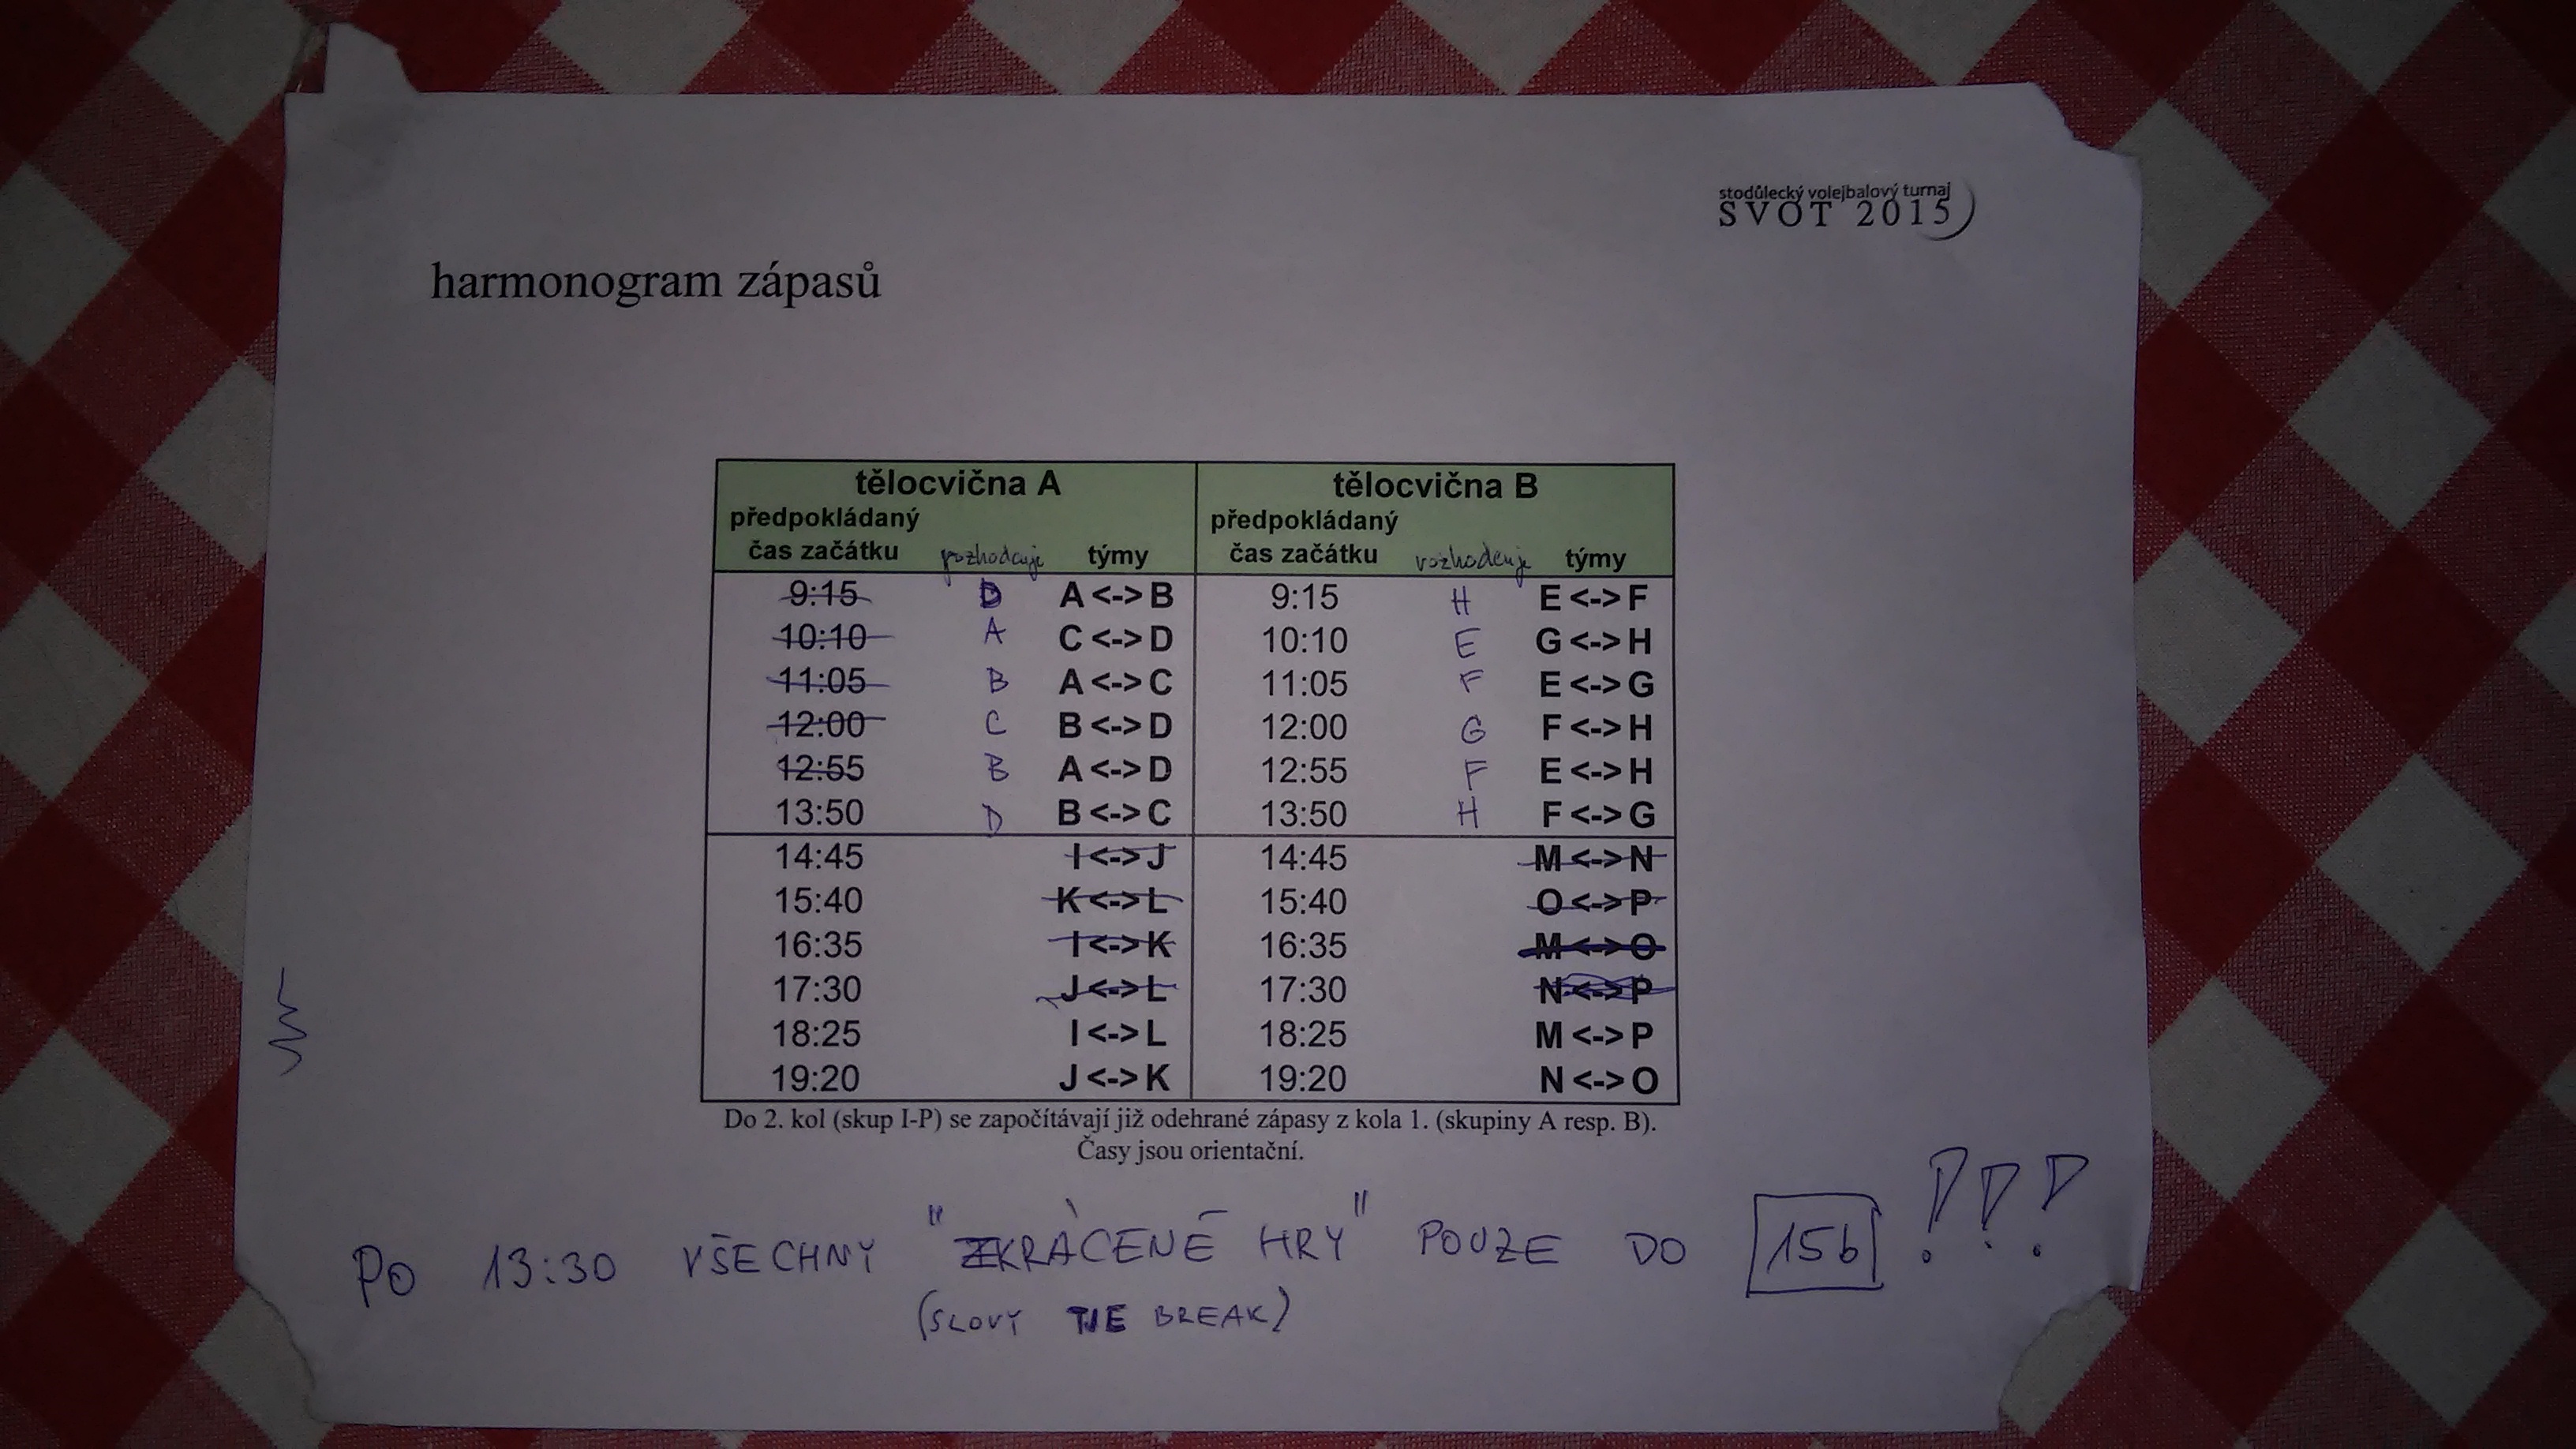 stodůlecký volejbalový turnaj
SVOT 2015
harmonogram zápasů
tělocvična A tělocvična B
předpokládaný předpokládaný
čas začátku rozhoduje týmy čas začátku rozhoduje týmy
9:15 D A <-> B 9:15 H E <-> F
10:10 A C <-> D 10:10 E G <-> H
11:05 B A <-> C 11:05 F E <-> G
12:00 C B <-> D 12:00 G F <-> H
12:55 B A <-> D 12:55 F E <-> H
13:50 D B <-> C 13:50 H F <-> G
14:45 I <-> J 14:45 M <-> N
15:40 K <-> L 15:40 O <-> P
16:35 I <-> K 16:35 M <-> O
17:30 J <-> L 17:30 N <-> P
18:25 I <-> L 18:25 M <-> P
19:20 J <-> K 19:20 N <-> O
Do 2. kol (skup I-P) se započítávají již odehrané zápasy z kola 1. (skupiny A resp. B).
Časy jsou orientační.
PO 13:30 VŠECHNY "ZKRÁCENÉ HRY" POUZE DO 15b !!!
(SLOVY TIE BREAK)